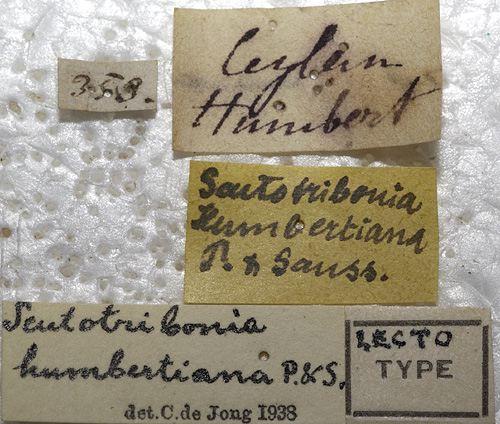 358.
Ceylan
Humbert
Scutotribonia
Humbertiana
P. & Sauss.
Scutotribonia
humbertiana P.&S.
det.C.de Jong 1938
LECTO
TYPE